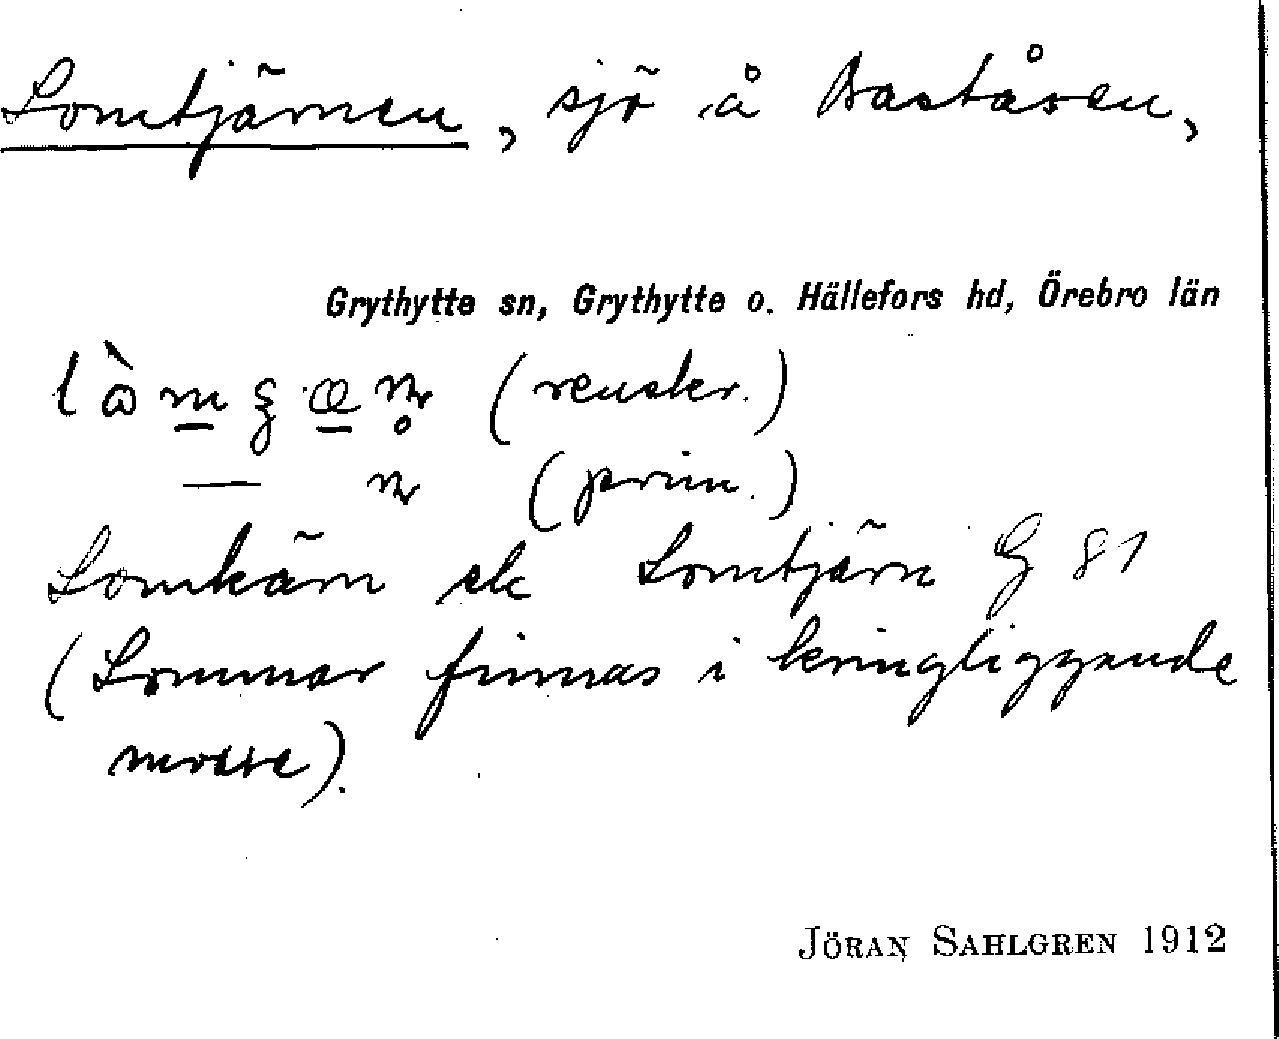 Lomtjärnen, sjö å Baståsen,
Grythytte sn, Grythytte o. Hällefors hd, Örebro län
(yngler.)
— (prim.)
Lomkärn ek Lomtjärn G 81
(Lommar finnas i kringliggande
mosse).
JÖRAN SAHLGREN 1912